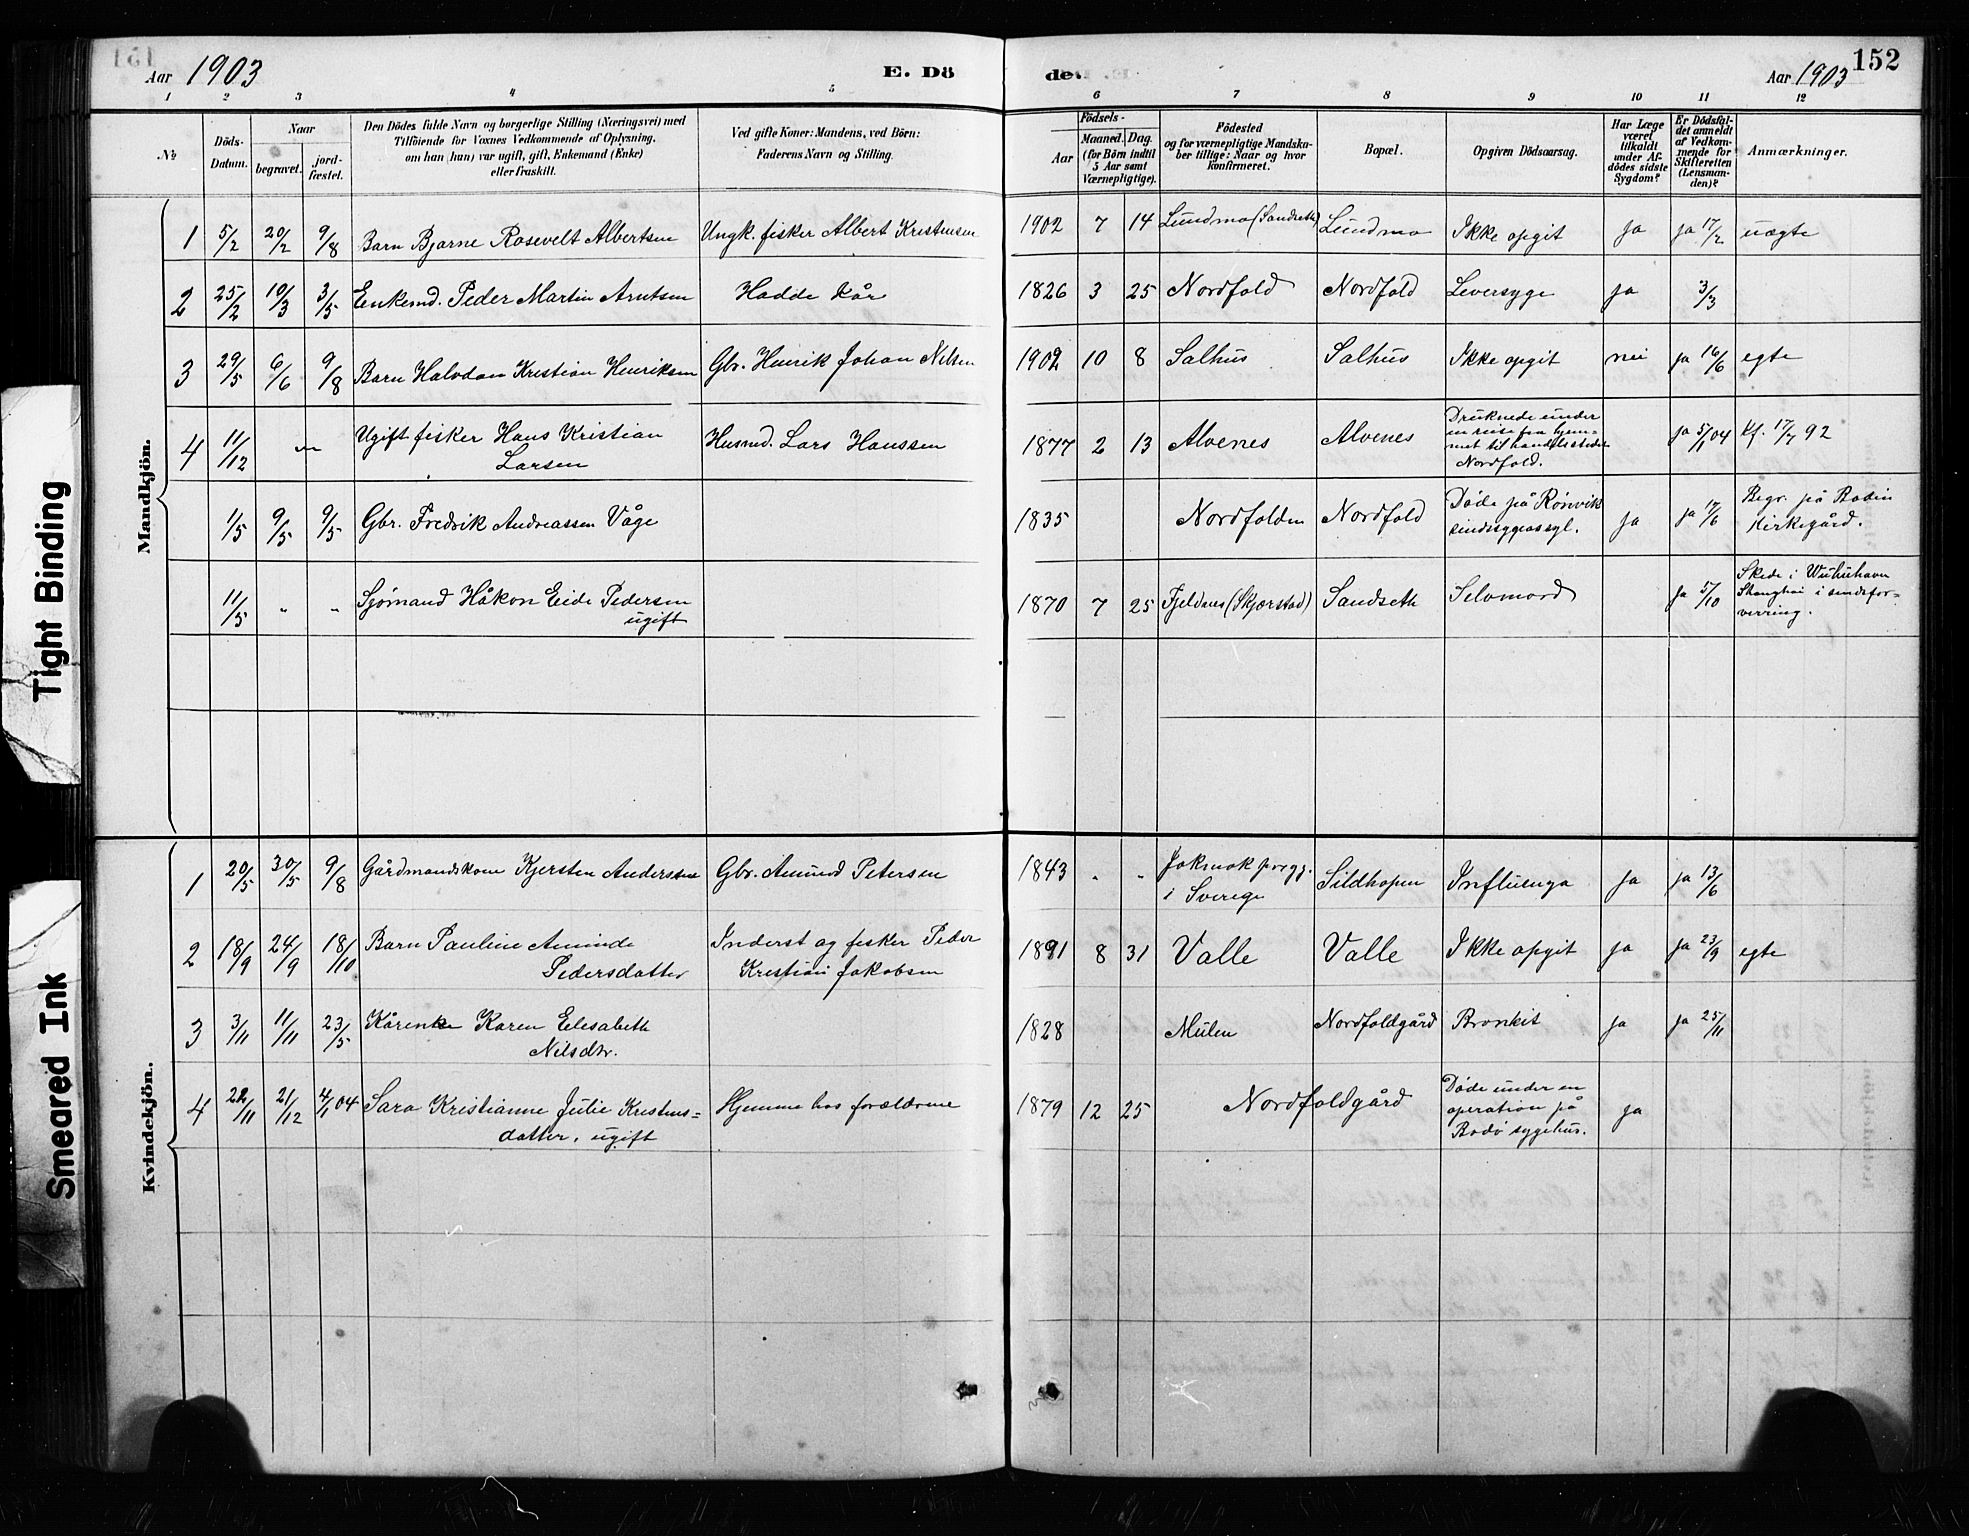 151
Aar 1903
E. Dö
den.
Aar 1903
152
1 2 3 4 5 6 7 8 9 10 11 12
№
Döds-
Datum.
Naar
begravet.
jord-
fæstet.
Den Dödes fulde Navn og borgerlige Stilling (Næringsvei) med
Tilföiende for Voxnes Vedkommende af Oplysning,
om han (hun) var ugift, gift, Enkemand (Enke)
eller fraskilt.
Ved gifte Koner: Mandens, ved Börn:
Faderens Navn og Stilling.
Födsels-
Aar
Maaned. Dag.
(for Börn indtil
5 Aar samt
Værnepligtige).
Födested
og for værnepligtige Mandska-
ber tillige: Naar og hvor
konfirmeret.
Bopæl.
Opgiven Dödsaarsag.
Har Læge
været
tilkaldt
under Af-
dödes sidste
Sygdom?
Er Dödsfal-
det anmeldt
af Vedkom-
mende for
Skifteretten
(Lensman-
den)?
Anmærkninger.
Mandkjön.
1 5/2 20/2 9/8 Barn Bjarne Rosevelt Albertsen Ungk. fisker Albert Kristensen 1902 7 14 Lundmo (Sandseth) Lundmo Ikke opgit ja ja 17/2 uægte
2 25/2 10/3 3/5 Enkemd. Peder Martin Arntsen Hadde kår 1826 3 25 Nordfold Nordfold Leversyge ja 3/3
3 29/5 6/6 9/8 Barn Halvdan Kristian Henriksen Gbr. Henrik Johan Nilsen 1902 10 8 Salhus Salhus Ikke opgit nei ja 16/6 egte
4 11/12 Ugift fisker Hans Kristian
Larsen
Husmd. Lars Hanssen 1877 2 13 Alvenes Alvenes
Druknede under
en reise fra hjem-
met til handelsstedet
Nordfold.
ja 5/1 04 Kf. 17/7 92
1/5 9/5 9/5 Gbr. Fredrik Andreassen Våge 1835 Nordfolden Nordfold
Døde på Rønvik
sindssygeasyl.
ja ja 17/6
Begr. på Bodin
kirkegård.
11/5 " " Sjømand Håkon Eide Pedersen
ugift
1870 7 25 Fjeldnes (Skjerstad) Sandseth Selvmord ja 5/10
Skede i Wuhuhavn
Shanghai i sindsfor-
virring.
Kvindekjön.
1 20/5 30/5 9/8 Gårdmandskone Kjersten Andersen Gbr. Amund Petersen 1843 " "
Jokmok prgj.
i Sverige
Sildhopen Influenza ja ja 13/6
2 18/9 24/9 18/10 Barn Pauline Aminde
Pedersdatter
Inderst og fisker Peder
Kristian Jakobsen
1891 8 31 Valle Valle Ikke opgit ja ja 23/9 egte
3 3/11 11/11 23/5 Kårenke Karen Elesabeth
Nilsdtr.
1828 Mulen Nordfoldgård Bronkit ja ja 25/11
4 22/11 21/12 4/1 04 Sara Kristianne Julie Kristens=
datter, ugift
Hjemme hos forældrene 1879 12 25 Nordfoldgård
Døde under en
operation på
Bodø sygehus.
ja
Tight Binding
Smeared Ink